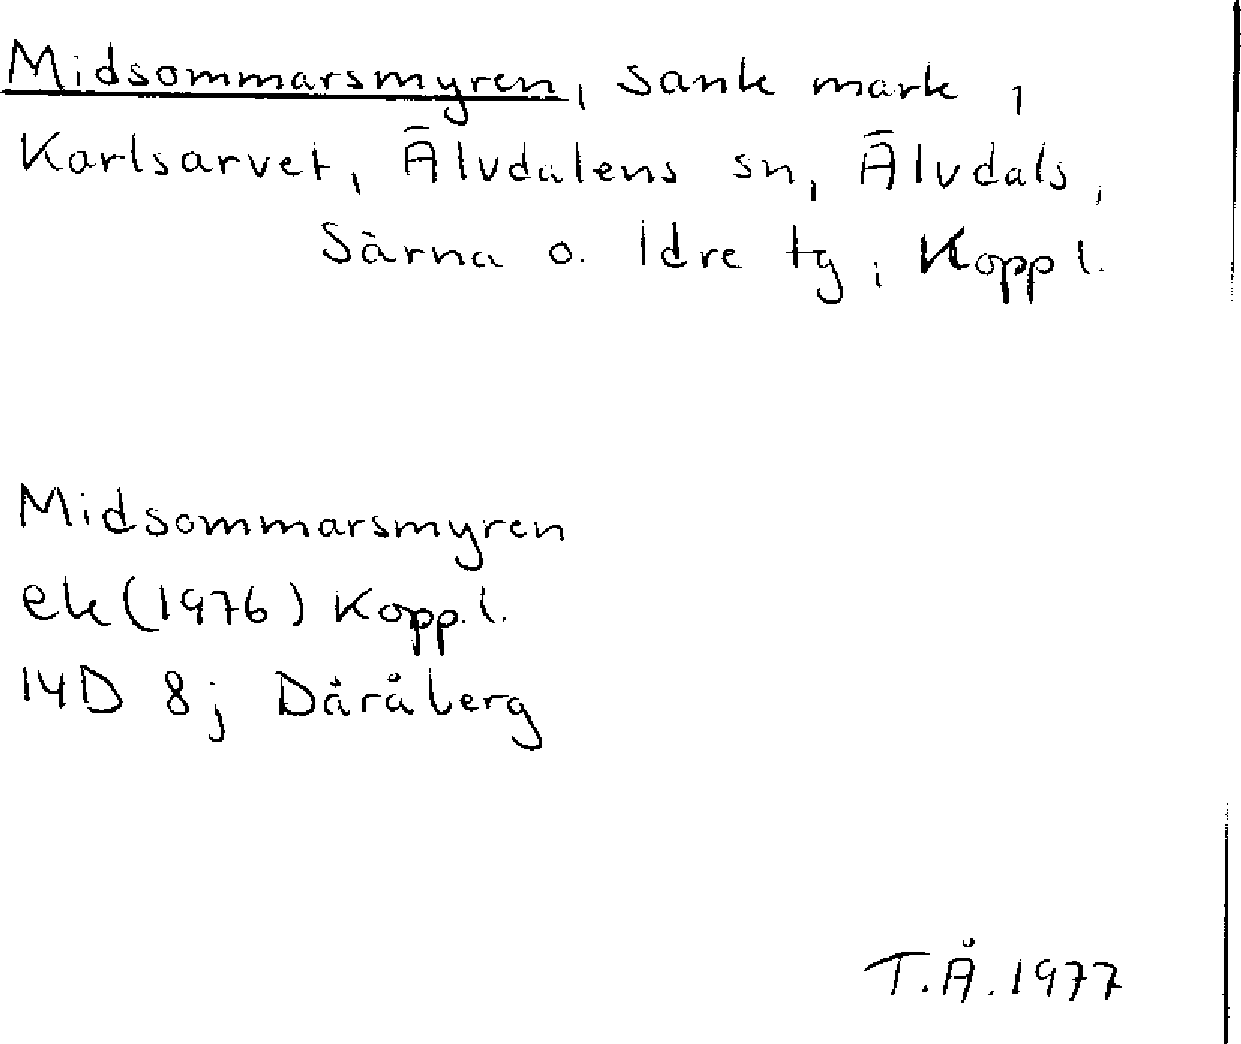 Midsommarsmyren, sank mark,
Karlsarvet, Älvdalens sn, Älvdals,
Särna o. Idre tg, Kopp l.
Midsommarsmyren
ek (1976) Kopp. l.
14D 8j Dåråberg
T.Å. 1977